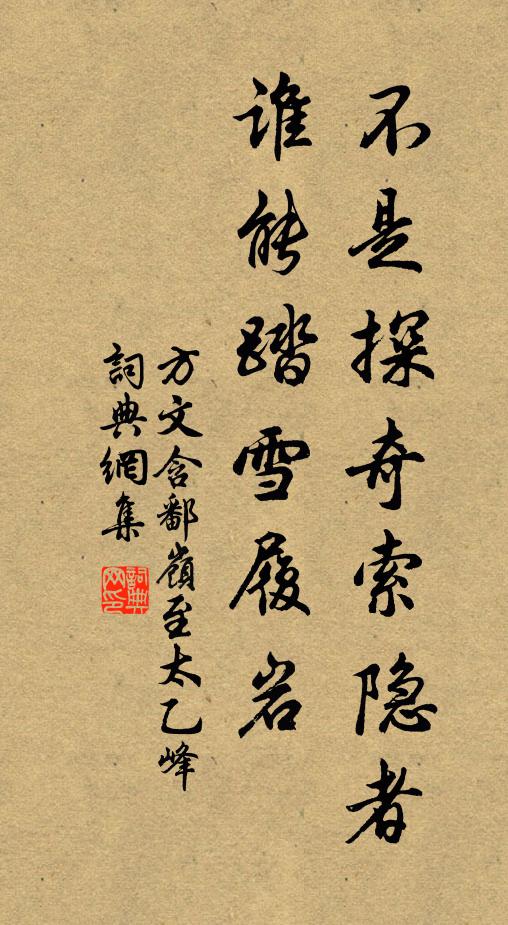 不是探奇索隐者
谁能踏雪履岩
方文含鄱嶺至太乙峰
詞典網集
詞典网印